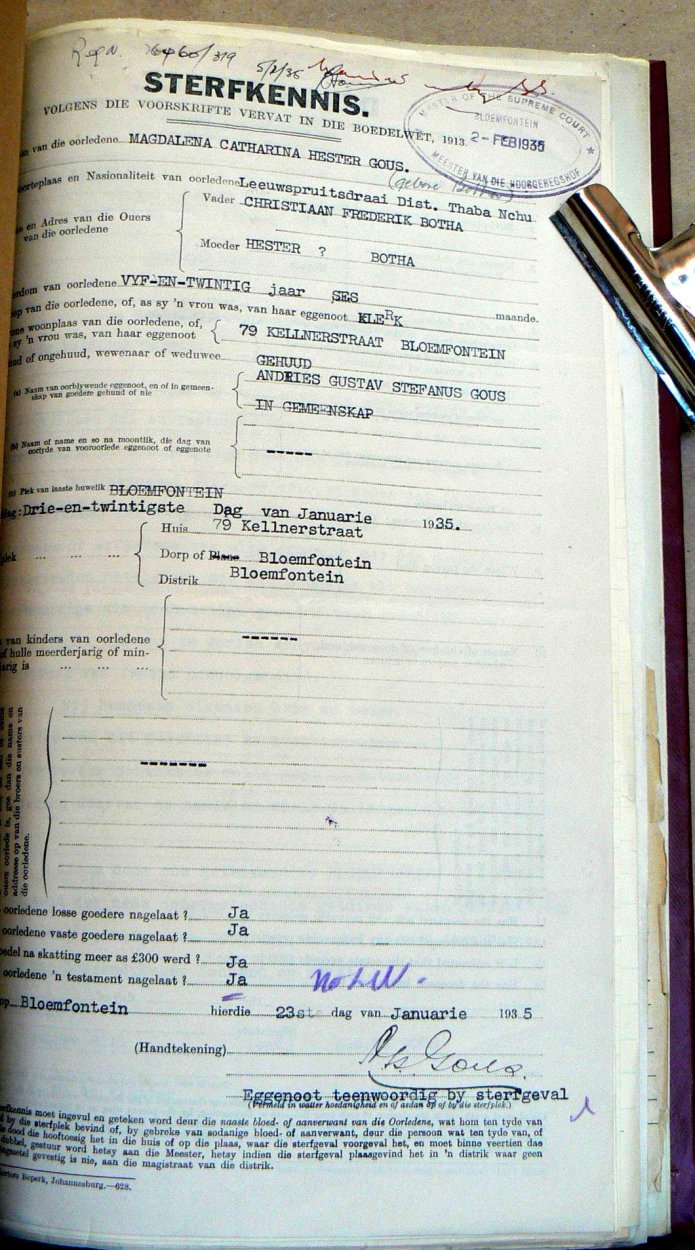 5/2/35
STERFKENNIS.
VOLGENS DIE VOORSKRIFTE VERVAT IN DIE BOEDELWET, 1913.
MASTER OF THE SUPREME COURT
BLOEMFONTEIN
2-FEB1935
MEESTER VAN DIE HOOGGEREGSHOF
van die oorledene MAGDALENA CATHARINA HESTER GOUS.
(gebore Botha)
en Nasionaliteit van oorledene Leeuwspruitsdraai Dist. Thaba Nchu
Vader CHRISTIAAN FREDERIK BOTHA
en Adres van die Ouers
van die oorledene
Moeder HESTER ? BOTHA
van oorledene VYF-EN-TWINTIG jaar SES maande.
van die oorledene, of, as sy 'n vrou was, van haar eggenoot KLERK
woonplaas van die oorledene, of,
sy 'n vrou was, van haar eggenoot 79 KELLNERSTRAAT BLOEMFONTEIN
of ongehuud, wewenaar of weduwee GEHUUD
(a) Naam van oorblywende eggenoot, en of in gemeen-
skap van goedere gehuud of nie
ANDRIES GUSTAV STEFANUS GOUS
IN GEMEENSKAP
(b) Naam of name en so na moontlik, die dag van
oorlyde van vooroorlede eggenoot of eggenote
-----
(c) Plek van laaste huwelik BLOEMFONTEIN
Drie-en-twintigste Dag van Januarie 1935.
Huis 79 Kellnerstraat
Dorp of Plaas Bloemfontein
Distrik Bloemfontein
van kinders van oorledene
of hulle meerderjarig of min-
jarig is ... ... ...
------
addresse op van die broers en susters van
die oorledene.
-------
oorledene losse goedere nagelaat ? Ja
oorledene vaste goedere nagelaat ? Ja
na skatting meer as £300 werd ? Ja
oorledene 'n testament nagelaat ? Ja
op Bloemfontein hierdie 23ste dag van Januarie 1935
(Handtekening)
Eggenoot teenwoordig by sterfgeval
(Vermeld in watter hoedanigheid en of aldan op of by die sterfplek.)
moet ingevul en geteken word deur die naaste bloed- of aanverwant van die Oorledene, wat hom ten tyde van
by die sterfplek bevind of, by gebreke van sodanige bloed- of aanverwant, deur die persoon wat ten tyde van, of
die dood die hooftoesig het in die huis of op die plaas, waar die sterfgeval voorgeval het, en moet binne veertien dae
gestuur word hetsy aan die Meester, hetsy indien die sterfgeval plaasgevind het in 'n distrik waar geen
gevestig is nie, aan die magistraat van die distrik.
Beperk, Johannesburg.—628.